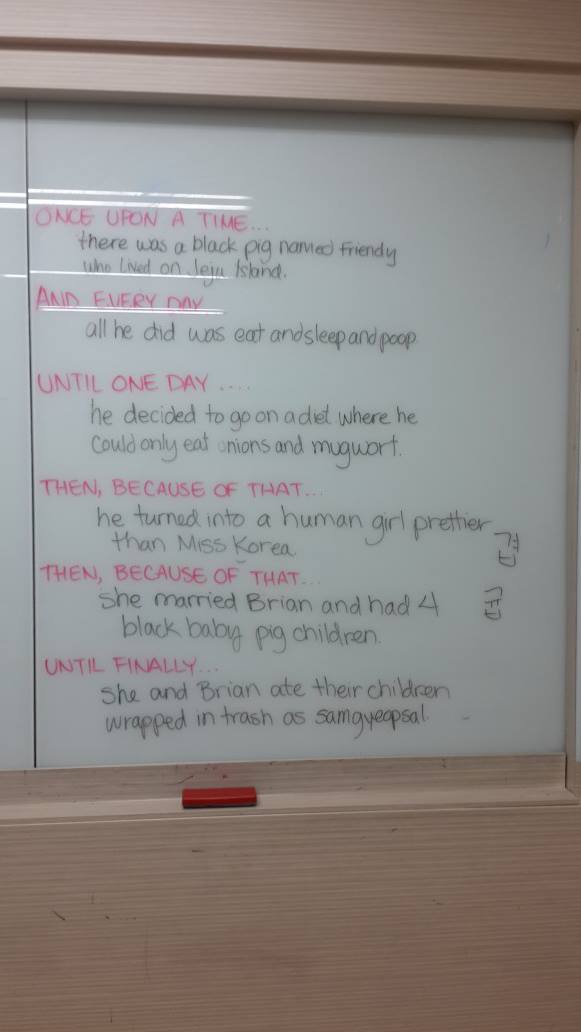 ONCE UPON A TIME...
there was a black pig named Friendy
who lived on Jeju Island.
AND EVERY DAY
all he did was eat and sleep and poop.
UNTIL ONE DAY ....
he decided to go on a diet where he
could only eat onions and mugwort.
THEN, BECAUSE OF THAT...
he turned into a human girl prettier
than Miss Korea.
THEN, BECAUSE OF THAT...
she married Brian and had 4
black baby pig children.
UNTIL FINALLY...
She and Brian ate their children
wrapped in trash as samgyeopsal.